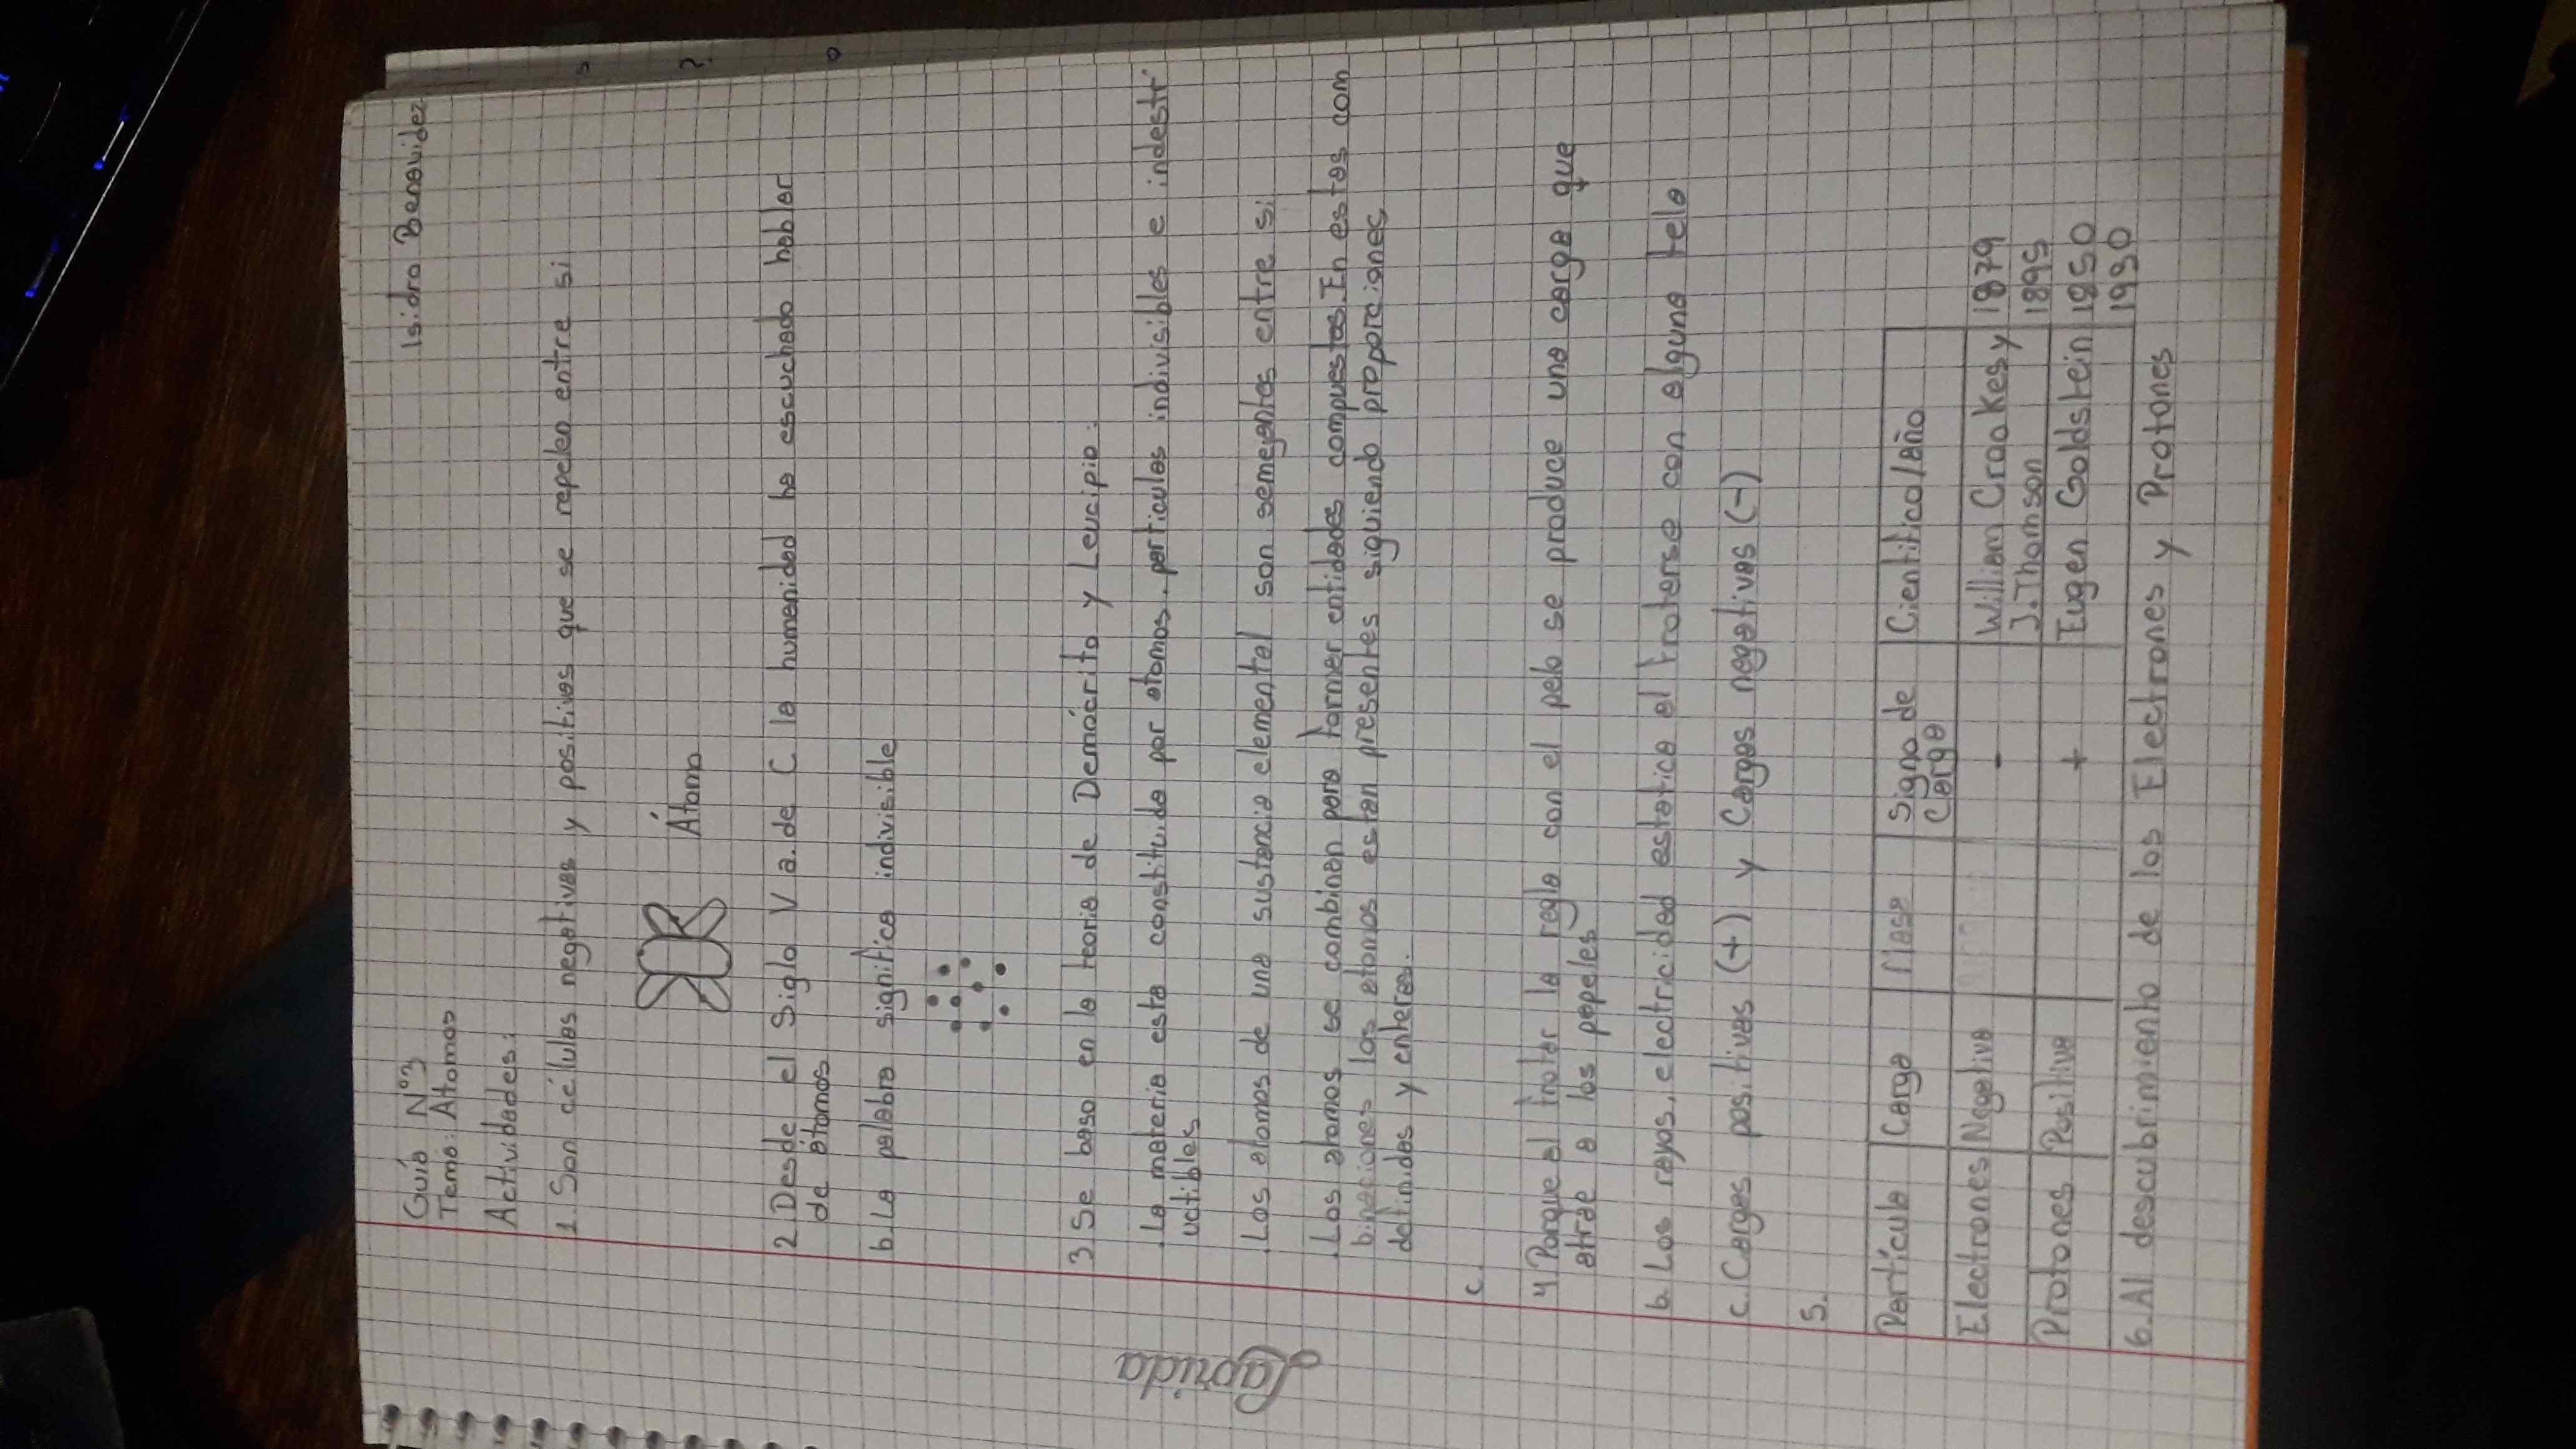 Isidro Benavidez
Guía N°3
Tema: Átomos
Actividades:
1. Son células negativas y positivas que se repelen entre si
Átomo
2 Desde el Siglo V a. de C la humanidad ha escuchado hablar
de átomos
b. La palabra significa indivisible
3 Se baso en la teoria de Demócrito y Leucipio:
. La materia esta constituida por atomos, particulas indivisibles e indestr
uctibles
. Los atomos de una sustancia elemental son semejantes entre si
. Los atomos se combinan para formar entidades compuestas. En estas com
binaciones los atomos estan presentes siguiendo proporciones
definidas y enteras.
c.
4 Porque al frotar la regla con el pelo se produce una carga que
atrae a los papeles
b. Los rayos, electricidad estatica al froterse con alguna tela
c. Cargas positivas (+) y Cargas negativas (-)
5.
Partícula Carga Masa Signo de Carga Cientifico/año
Electrones Negativa - William Crookes y 1879
J. Thomson 1895
Protones Positiva + Eugen Goldstein 1850
1930
6. Al descubrimiento de los Electrones y Protones
Laprida